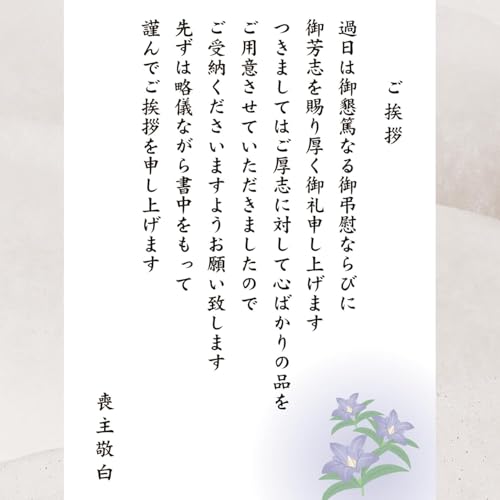 ご挨拶
過日は御懇篤なる御弔慰ならびに
御芳志を賜り厚く御礼申し上げます
つきましてはご厚志に対して心ばかりの品を
ご用意させていただきましたので
ご受納くださいますようお願い致します
先ずは略儀ながら書中をもって
謹んでご挨拶を申し上げます
喪主敬白